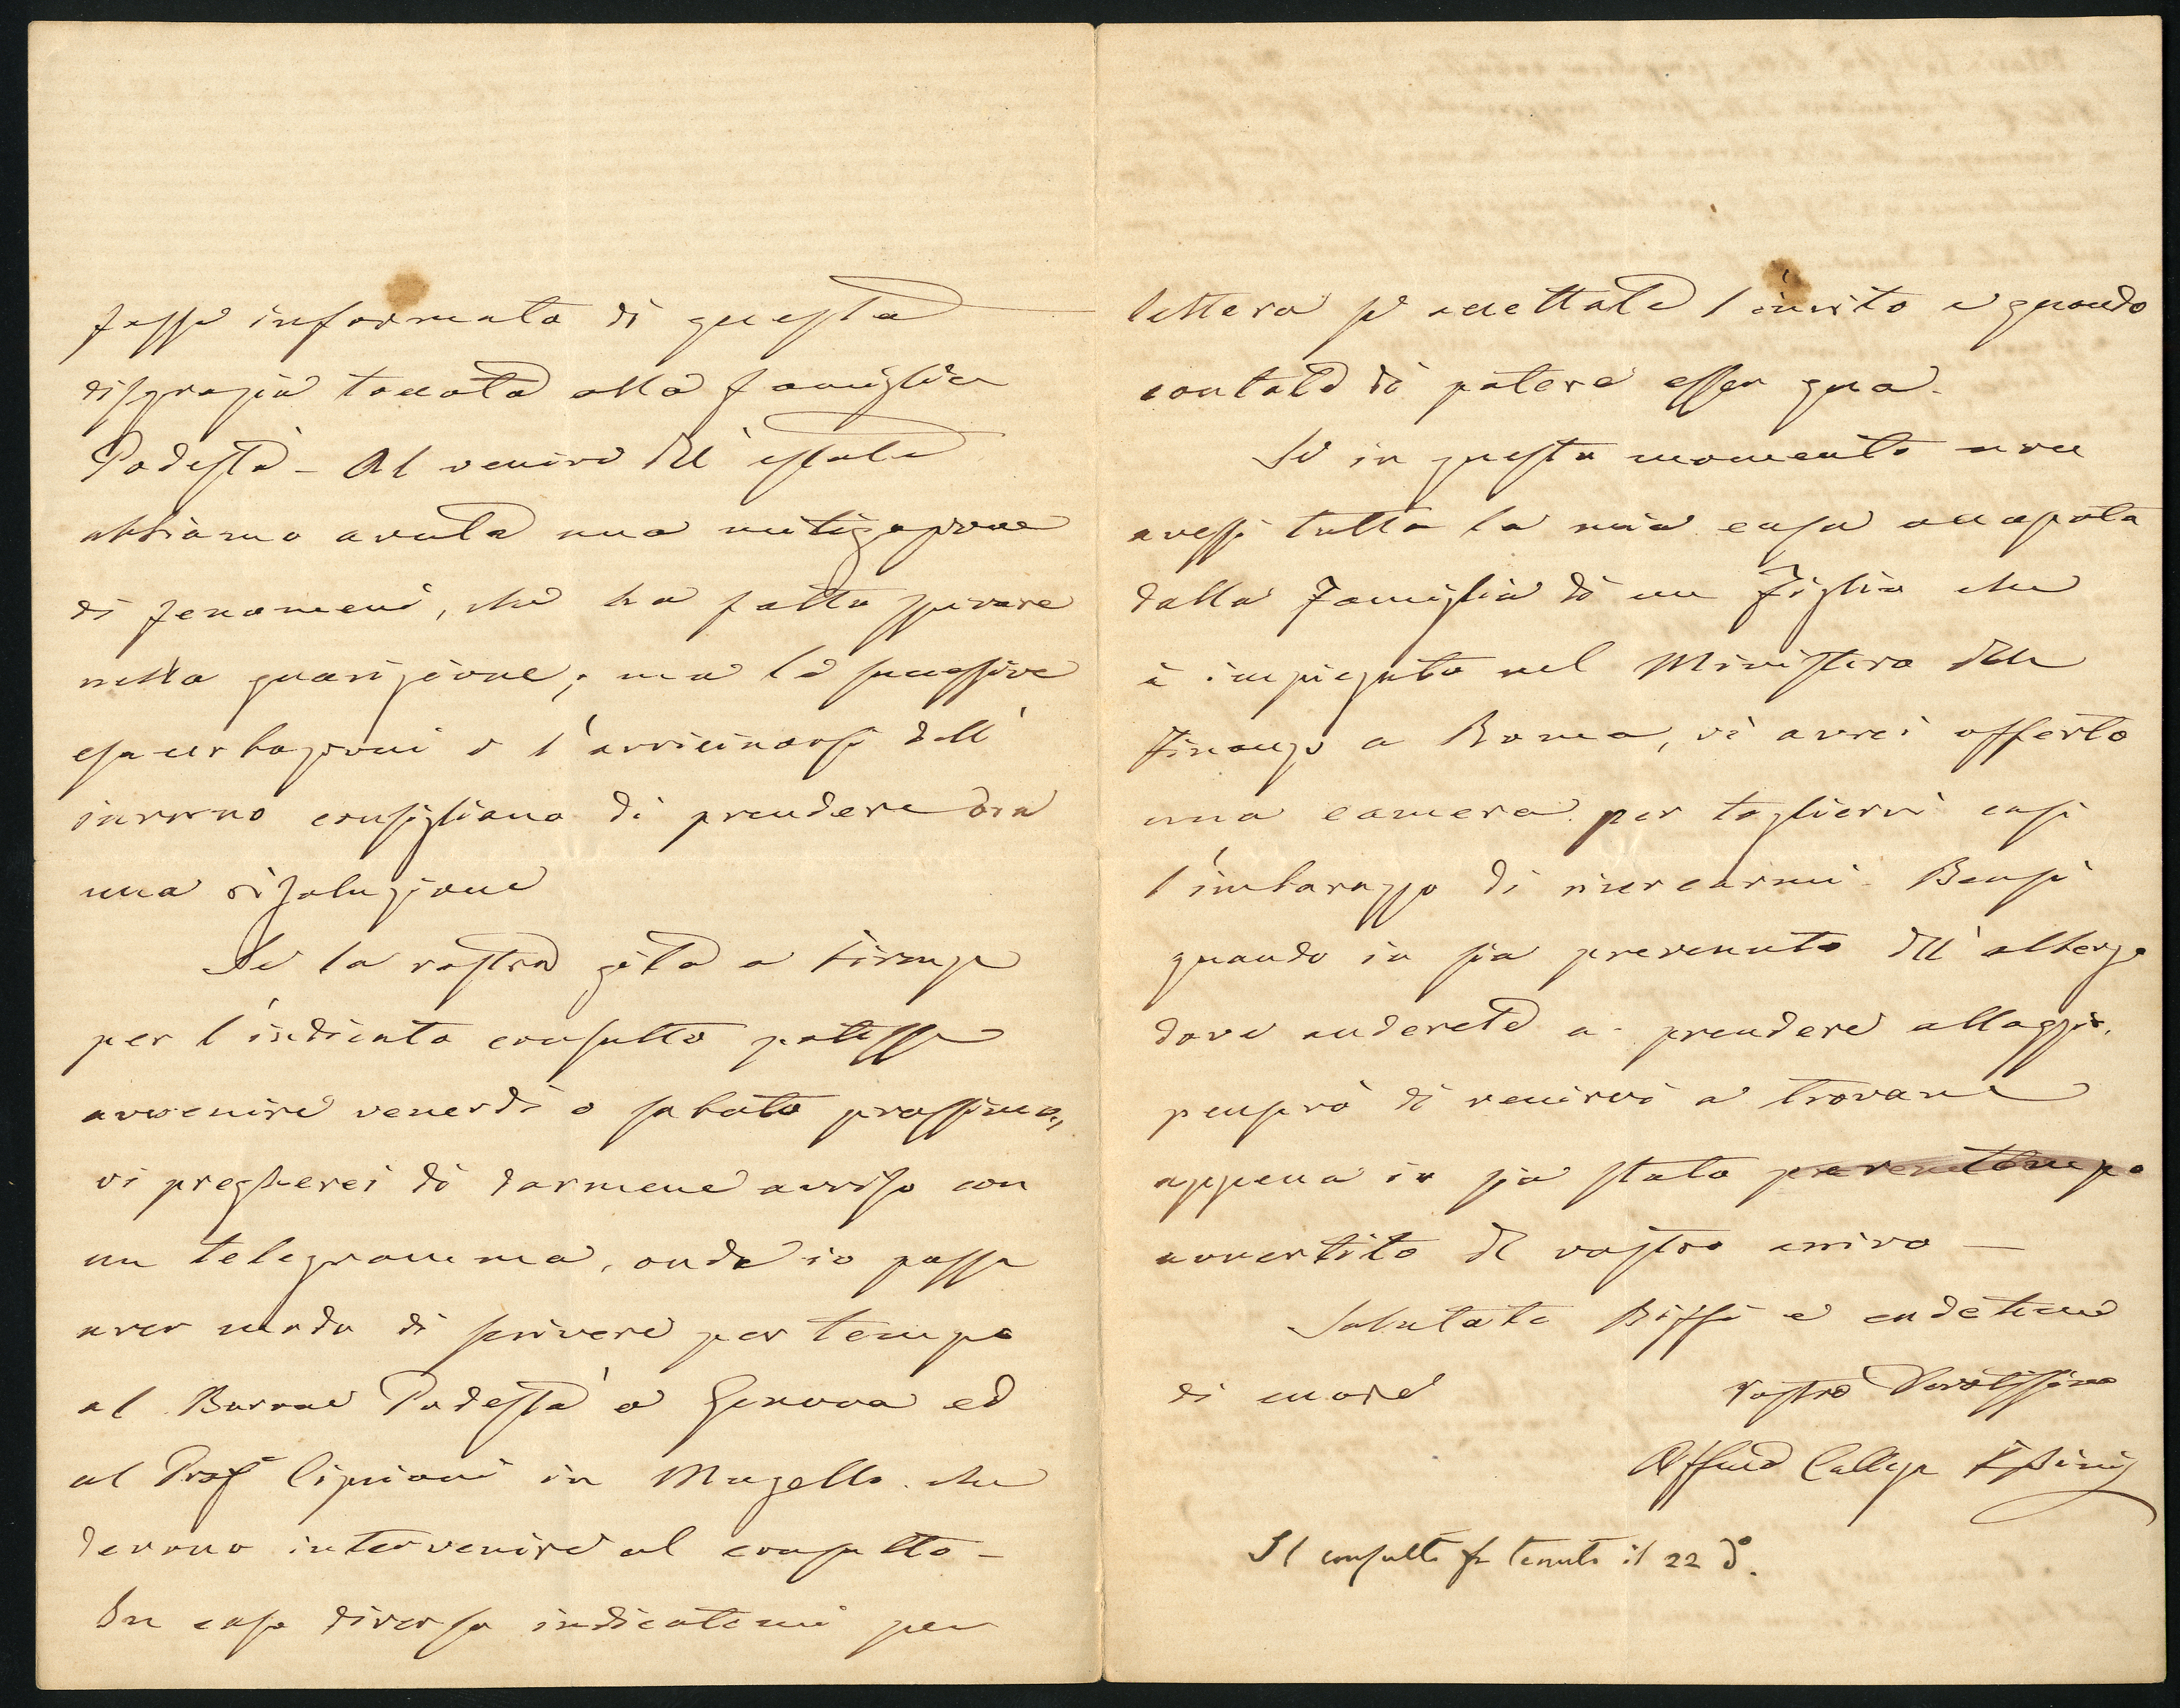 fosse informata di questa
disgrazia toccata alla famiglia
Podestà - Al venire dell'estate
abbiamo avuta una mitigazione
di fenomeni, che ha fatto sperare
nella guarigione; ma le successive
esacerbazioni e l'avvicinarsi dell'
inverno consigliano di prendere ora
una risoluzione
Se la vostra gita a Firenze
per l'indicato consulto potesse
avvenire venerdì o sabato prossimo,
vi pregherei di darmene avviso con
un telegramma, onde io possa
aver modo di scrivere per tempo
al Barone Podestà a Genova ed
al Prof Cipriani in Mugello che
devono intervenire al consulto -
In caso diverso indicatemi per
lettera se accettate l'invito e quando
contate di potere esser qua.
Se in questo momento non
avessi tutta la mia casa occupata
dalla Famiglia di un Figlio che
è impiegato nel Ministero delle
Finanze a Roma, vi avrei offerto
una camera per togliervi così
l'imbarazzo di ricercarmi. Bensì
quando io sia prevenuto dell'albergo
dove anderete a prendere alloggio,
penserò di venirvi a trovare
appena io sia stato
avvertito del vostro arrivo -
Salutate Biffi e credetemi
di cuore vostro Devotissimo
Il consulto fu tenuto il 22 dº.